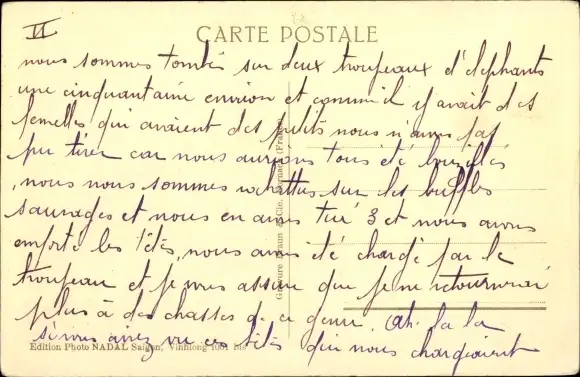 II
CARTE POSTALE
nous sommes tombés sur deux troupeaux d'elephants
une cinquantaine environ et comme il y avait des
femelles qui avaient des petits nous n'avons pas
pu tirer car nous aurions tous été bousillés
nous nous sommes rabattus sur les buffles
sauvages et nous en avons tué 3 et nous avons
emporté les têtes, nous avons été chargé par le
troupeau et je vous assure que je ne retournerai
plus à des chasses de ce genre. Ah. la la
si vous aviez vu ces bêtes qui nous chargeaient
Edition Photo NADAL Saigon, Vinhlong
Gravure Braun & Cie,
(France)